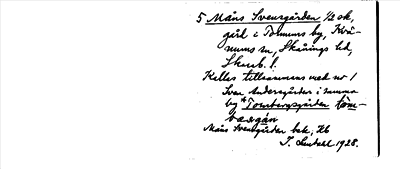 5 Måns Svensgården 1/2 sk,
gård i Tommums by, Kvä-
nums sn, Skånings hd,
Skarab. l.
Kallas tillsammans med nr 1
Sven Andersgården i samma
by "Tombergsgården
Måns Svensgården bek,
J. Lindahl 1928.